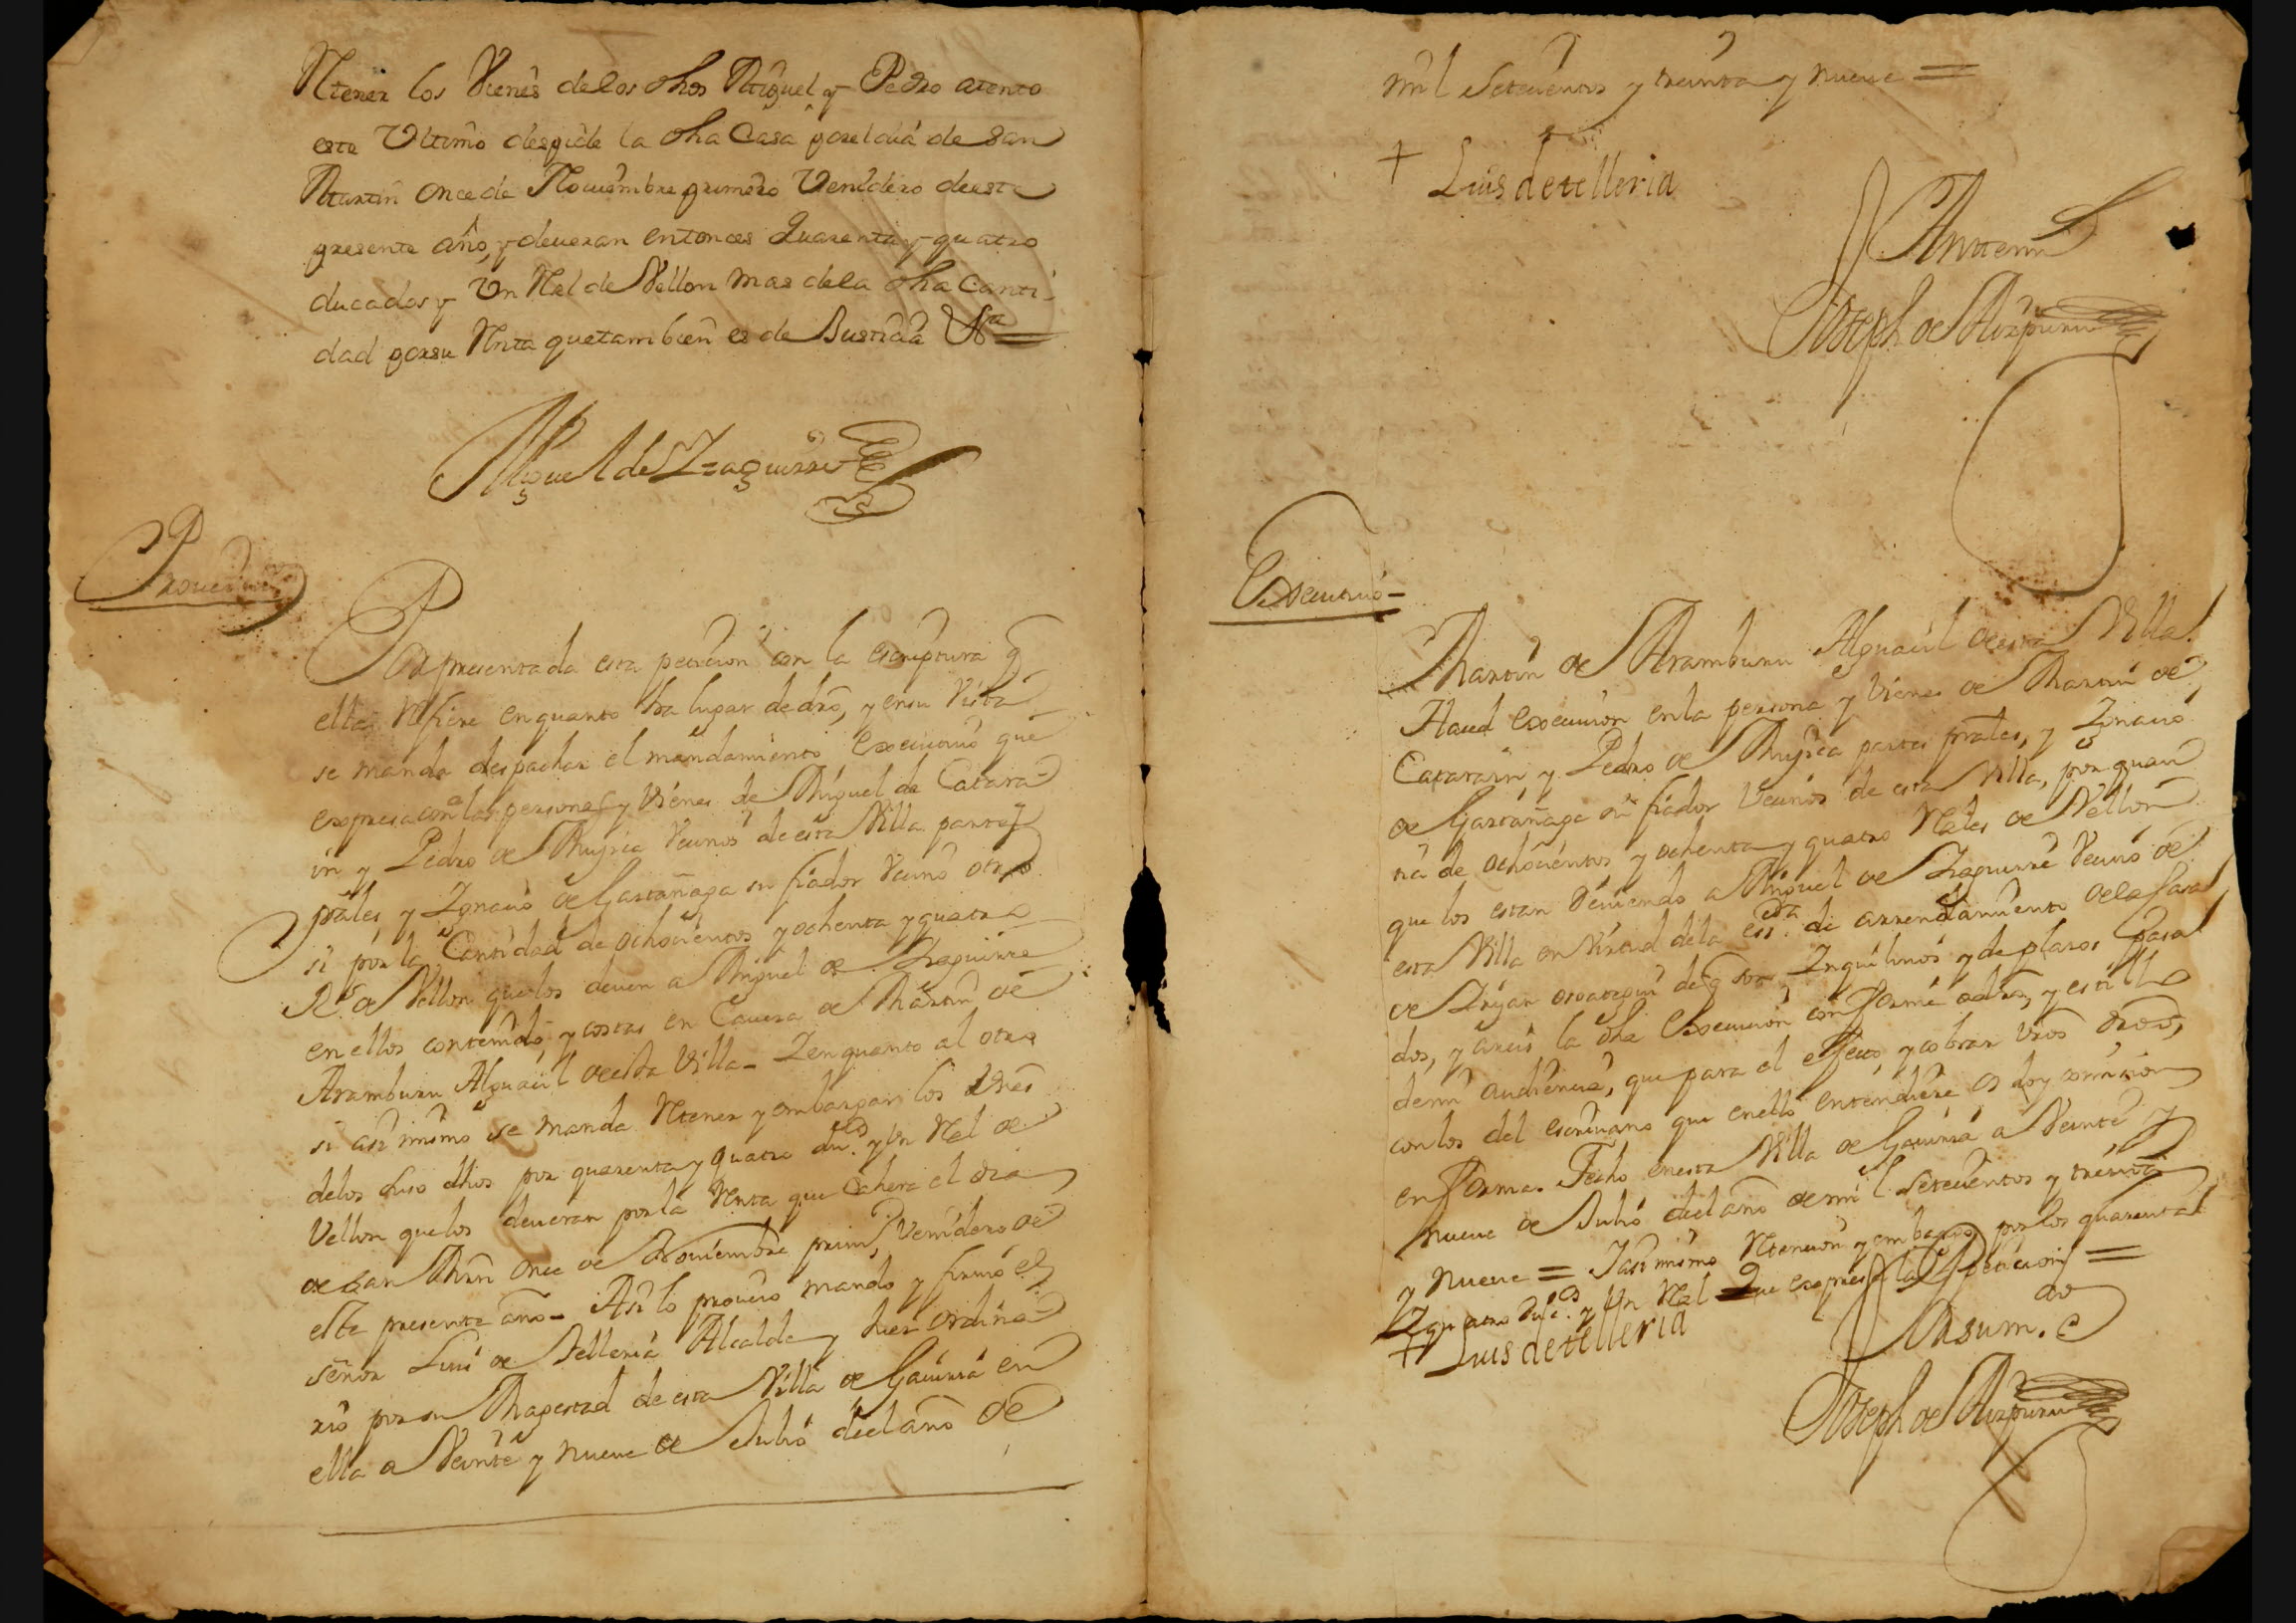 Retener los Vienes de los dhos Miguel y Pedro atento
este Vltimo despide la dha Casa por el dia de San
Martin once de Nouiembre primero Venidero de este
presente año, y deueran entonces Quarenta y quatro
ducados y Vn Real de Vellon mas de la dha Canti-
dad por su Renta que tambien es de Justicia Vª
Miguel de Yzaguirre
Por presentada esta peticion con la escriptura q
ella Refiere en quanto ha lugar de dro, y en su Vista
se manda despachar el mandamiento executiuo que
expresa con las personas y Vienes de Miguel de Catara
in y Pedro de Mugica Vecinos de esta Villa partes
prâles, y Ygnacio de Gastañaga su fiador Vecino otro
si por la Cantidad de ochocientos y ochenta y quatro
Rs de Vellon que los deuen a Miguel de Yzaguirre
en ellos contenido, y costas en Caueza de Martin de
Aramburu Alguacil de esta Villa - Y en quanto al otro
si asi mismo se manda Retener y embargar los Vienes
de los suso dhos por quarenta y quatro duc.s y Vn Real de
Vellon que los deueran por la Renta que Cahera el dia
de San Mrn Once de Nouiembre prim.o Venidero de
este presente año - Asi lo proueio mando y firmo el
señor Luis de Telleria Alcalde y Juez ordina
rio por su Magestad de esta Villa de Gauiria en
ella a Veinte y nueue de Julio de el año de
mil Setecientos y treinta y nueue =
+ Luis de telleria
Ante mi
Joseph de Aizpuru
Executiuo -
Martin de Aramburu Alguacil de esta Villa
Haced execucion en la persona y Vienes de Martin de
Catarain, y Pedro de Mugica partes prâles, y Ygnacio
de Gastañaga su fiador Vecinos de esta Villa, por quan
tia de ochocientos y ochenta y quatro Reales de Vellon
que los estan deuiendo a Miguel de Yzaguirre Vecino de
esta Villa en Virtud de la ess.ra de arrendamiento de la Casa
de Yrijar de q son Ynquilinos y de plazos pasa
dos, y haceis la dha execucion conforme a dro, y estillo
de mi audiencia, que para el efecto, y cobrar Vros dros,
con los del escriuano que en ello entendiere os doy comision
en forma. Fecho en esta Villa de Gauiria a Veinte y
nueue de Julio de el año de mil Setecientos y treinta
y nueue = Y asi mismo Retencion y embargo por los quarenta
y quatro duc.s y Vn Real Que expresa la Peticion =
+ Luis de telleria
Por su m.do
Joseph de Aizpuru